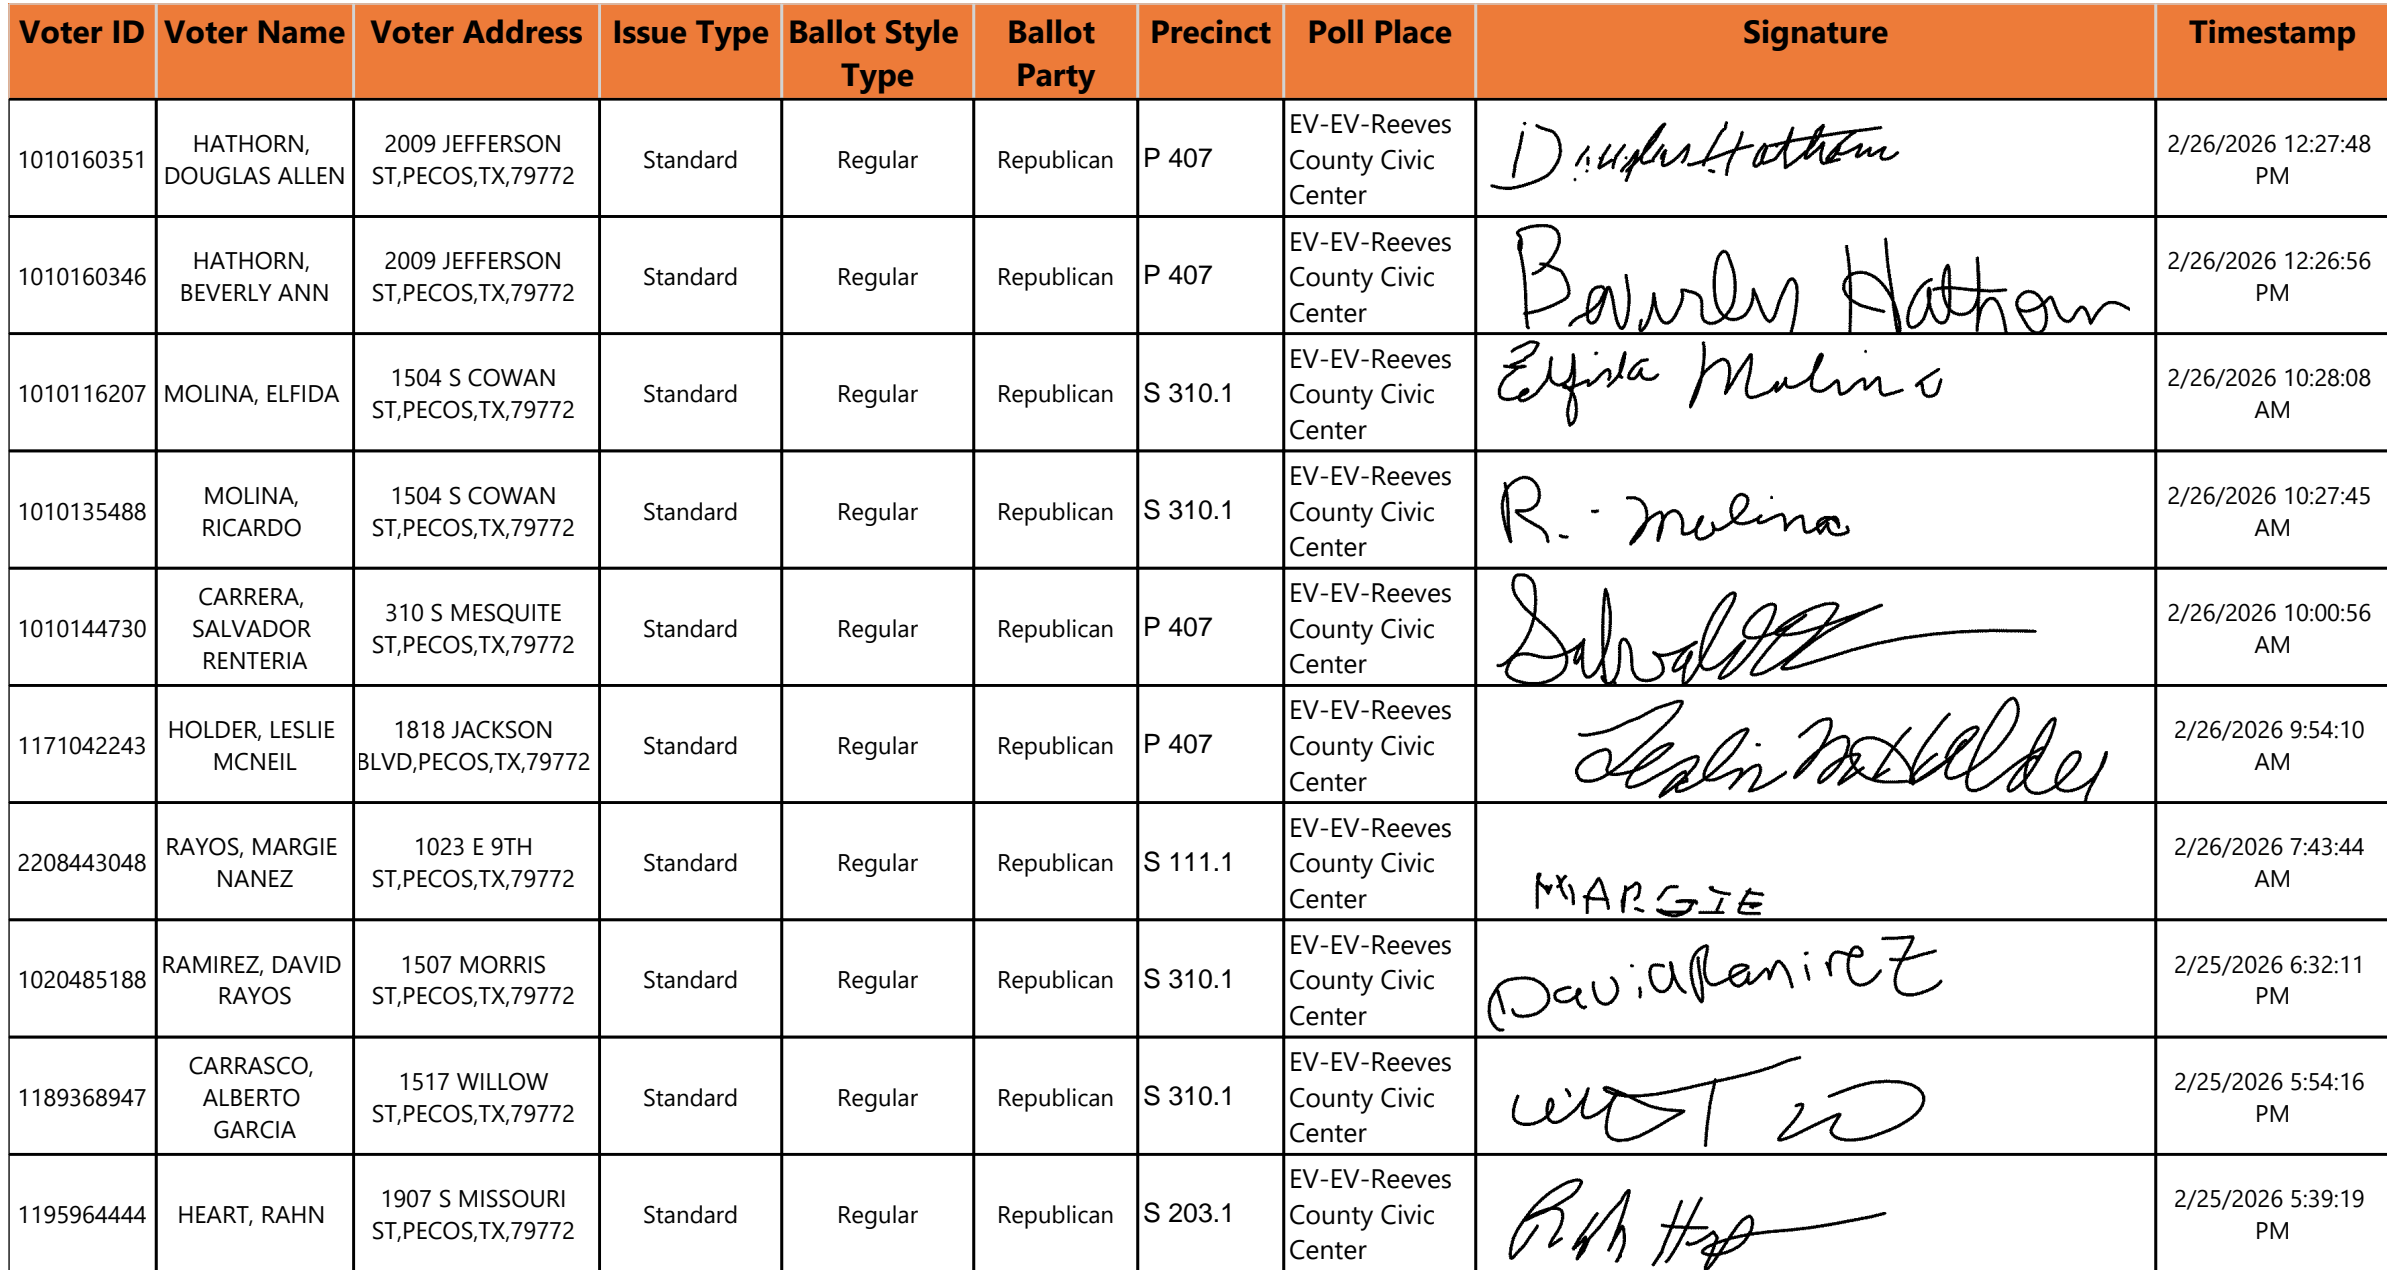 Voter ID Voter Name Voter Address Issue Type Ballot Style Type Ballot Party Precinct Poll Place Signature Timestamp
1010160351 HATHORN, DOUGLAS ALLEN 2009 JEFFERSON ST,PECOS,TX,79772 Standard Regular Republican P 407 EV-EV-Reeves County Civic Center Douglas Hathorn 2/26/2026 12:27:48 PM
1010160346 HATHORN, BEVERLY ANN 2009 JEFFERSON ST,PECOS,TX,79772 Standard Regular Republican P 407 EV-EV-Reeves County Civic Center Beverly Hathorn 2/26/2026 12:26:56 PM
1010116207 MOLINA, ELFIDA 1504 S COWAN ST,PECOS,TX,79772 Standard Regular Republican S 310.1 EV-EV-Reeves County Civic Center Elfida Molina 2/26/2026 10:28:08 AM
1010135488 MOLINA, RICARDO 1504 S COWAN ST,PECOS,TX,79772 Standard Regular Republican S 310.1 EV-EV-Reeves County Civic Center R. - Molina 2/26/2026 10:27:45 AM
1010144730 CARRERA, SALVADOR RENTERIA 310 S MESQUITE ST,PECOS,TX,79772 Standard Regular Republican P 407 EV-EV-Reeves County Civic Center 2/26/2026 10:00:56 AM
1171042243 HOLDER, LESLIE MCNEIL 1818 JACKSON BLVD,PECOS,TX,79772 Standard Regular Republican P 407 EV-EV-Reeves County Civic Center Leslie M Holder 2/26/2026 9:54:10 AM
2208443048 RAYOS, MARGIE NANEZ 1023 E 9TH ST,PECOS,TX,79772 Standard Regular Republican S 111.1 EV-EV-Reeves County Civic Center MARGIE 2/26/2026 7:43:44 AM
1020485188 RAMIREZ, DAVID RAYOS 1507 MORRIS ST,PECOS,TX,79772 Standard Regular Republican S 310.1 EV-EV-Reeves County Civic Center David Ramirez 2/25/2026 6:32:11 PM
1189368947 CARRASCO, ALBERTO GARCIA 1517 WILLOW ST,PECOS,TX,79772 Standard Regular Republican S 310.1 EV-EV-Reeves County Civic Center 2/25/2026 5:54:16 PM
1195964444 HEART, RAHN 1907 S MISSOURI ST,PECOS,TX,79772 Standard Regular Republican S 203.1 EV-EV-Reeves County Civic Center 2/25/2026 5:39:19 PM